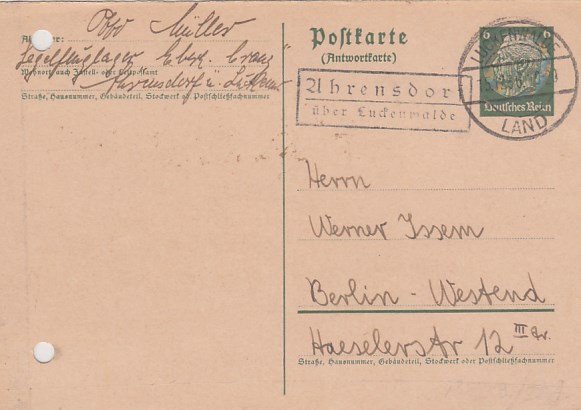 Otto Müller
Segelfluglager
Wohnort, auch Zustell- oder Leitpostamt
Ahrensdorf ü. Luckenw.
Straße, Hausnummer, Gebäudeteil, Stockwerk od. Postschließfachnummer
Postkarte
(Antwortkarte)
6 6
Deutsches Reich
LUCKENWALDE
LAND
Ahrensdorf
über Luckenwalde
Herrn
Werner Issem
Berlin - Westend
Haeselerstr 12 III
Straße, Hausnummer, Gebäudeteil, Stockwerk oder Postschließfachnummer